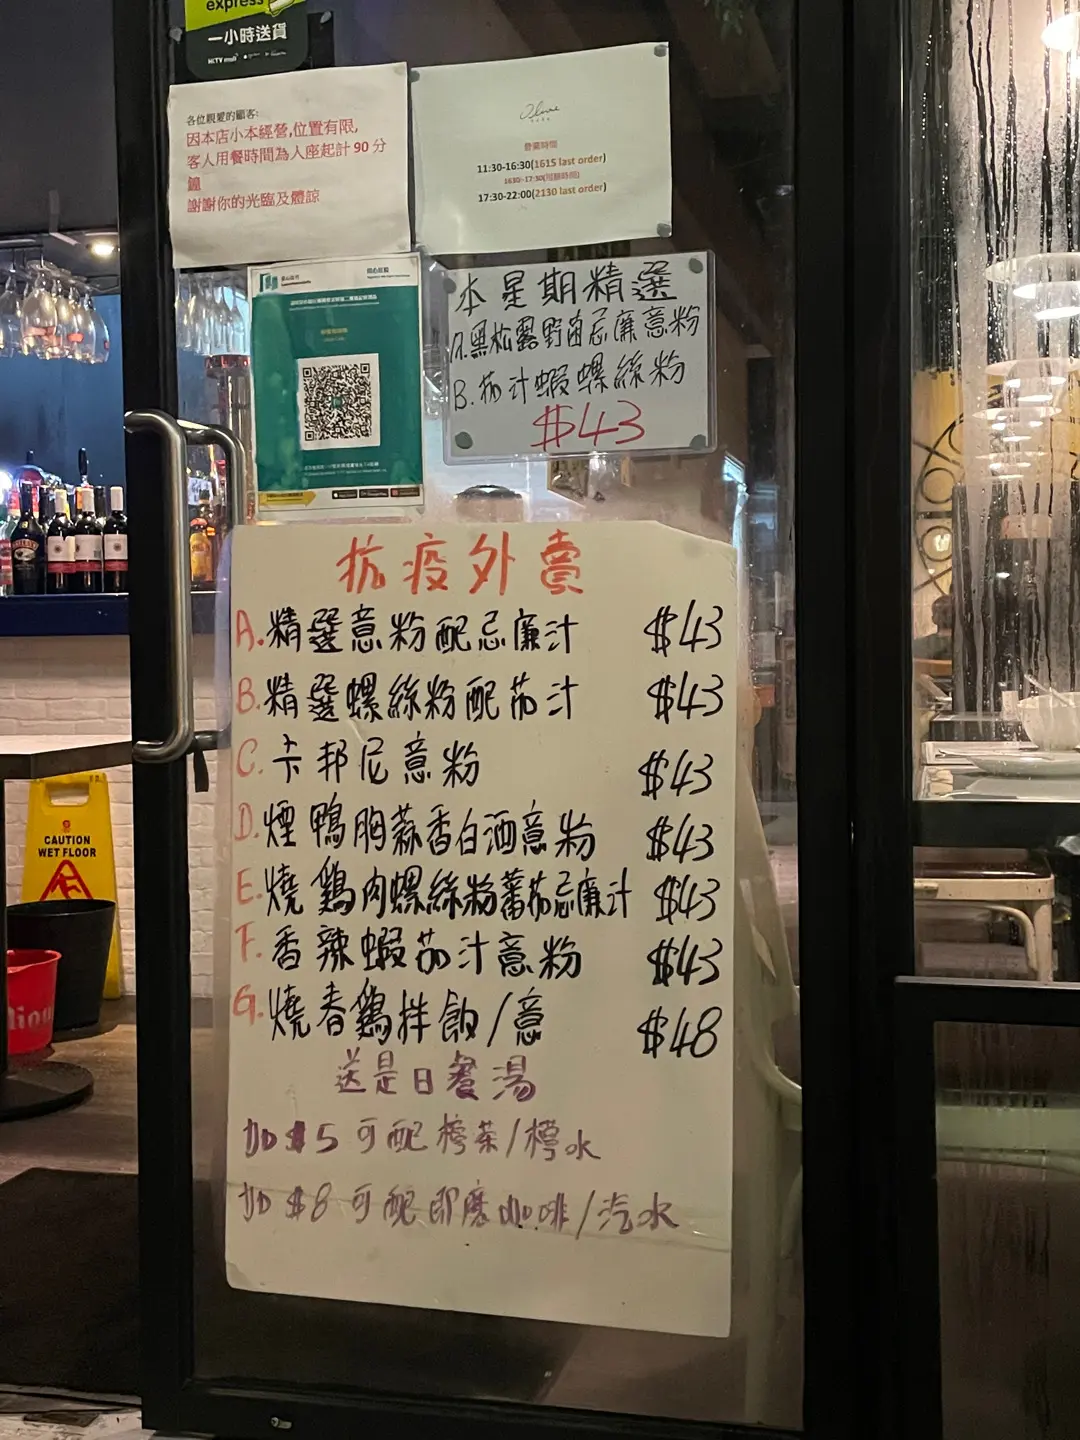 express
一小時送貨
HKTVmall
各位親愛的顧客:
因本店小本經營,位置有限,
客人用餐時間為入座起計 90 分
鐘
謝謝你的光臨及體諒
Olivie
營業時間
11:30-16:30(1615 last order)
17:30-22:00(2130 last order)
本星期精選
A.黑松露野菌忌廉意粉
B.茄汁蝦螺絲粉
$43
抗疫外賣
A.精選意粉配忌廉汁 $43
B.精選螺絲粉配茄汁 $43
C.卡邦尼意粉 $43
D.煙鴨胸蒜香白酒意粉 $43
E.燒鷄肉螺絲粉蕃茄忌廉汁 $43
F.香辣蝦茄汁意粉 $43
G.燒春鷄拌飯/意 $48
送是日餐湯
加$5可配檸茶/檸水
加$8可配即磨咖啡/汽水
CAUTION
WET FLOOR